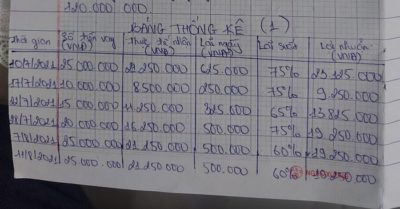 120 000 000.
BẢNG THỐNG KÊ (1)
Thời gian Số tiền vay (VNĐ) Thực tế nhận (VNĐ) Lãi ngày (VNĐ) Lãi suất Lợi nhuận (VNĐ)
10/7/2021 25 000 000 21 250 000 625.000 75% 23 125.000
17/7/2021 10 000 000 8 500 000 250 000 75% 9 250 000
15 000 000 11 250 000 325 000 65% 13 825 000
20 000 000 16 250 000 500 000 75% 19 250 000
7/8/2021 25 000 000 21 250 000 500 000 60% 19 250 000
25 000 000 21 250 000 500.000 60% 19 250 000